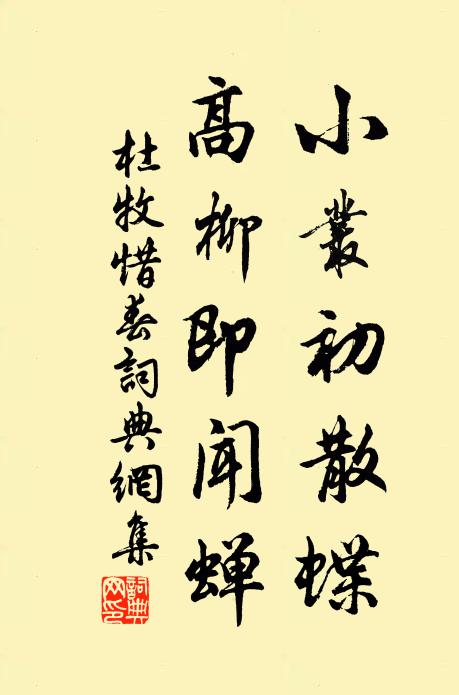 小叢初散蝶
高柳即聞蝉
杜牧惜春詞典網集
詞典
網印